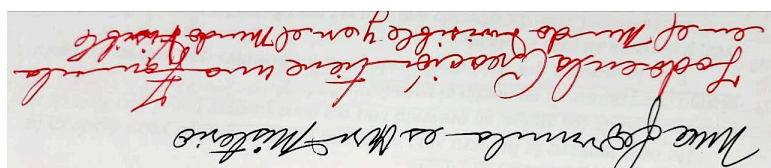 Una formula es Un Misterio
Todo en la Creación tiene una Formula
en el Mundo invisible y en el Mundo Visible